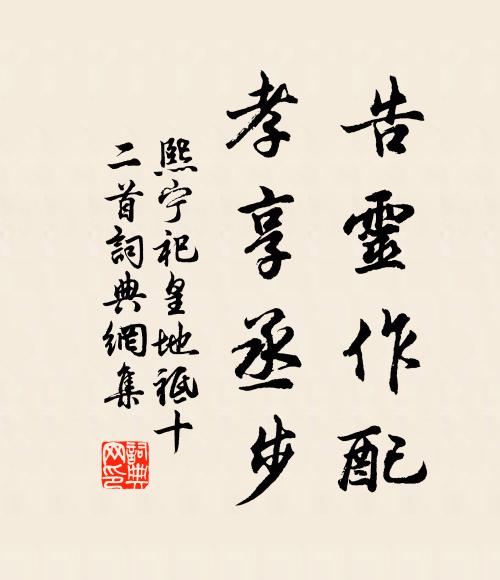 告靈作配
孝享丞步
熙宁祀皇地祇十
二首詞典網集
詞典
网印